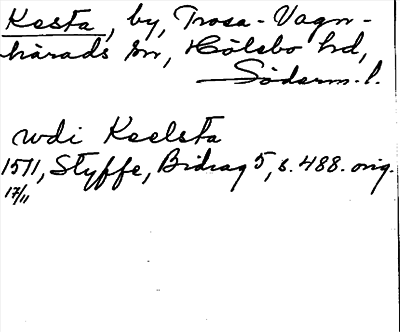 Kesta, by, Trosa-Vagn-
härads sn, Hölebo hd,
Söderm. l.
wdi Keelsta
1511, Styffe, Bidrag 5, s. 488. orig.
17/11